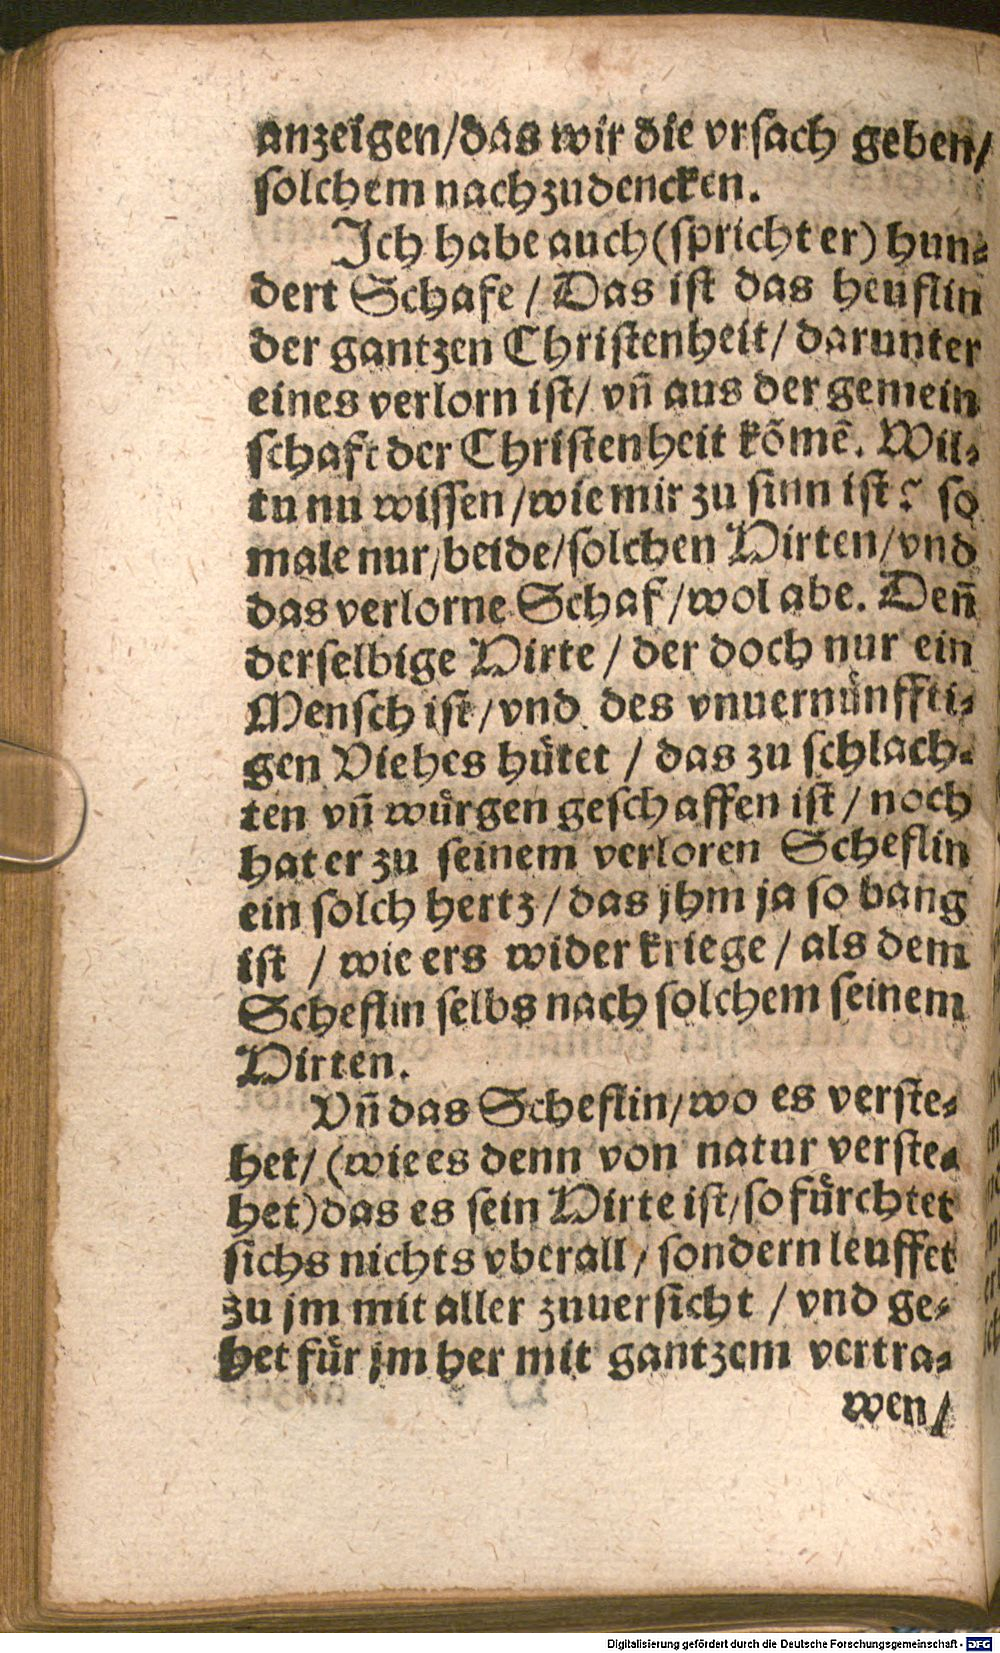 anzeigen/das wir die vrsach geben/
solchem nachzudencken.
Ich habe auch(spricht er) hun-
dert Schafe / Das ist das heuflin
der gantzen Christenheit/ darunter
eines verlorn ist/ vn̄ aus der gemein
schaft der Christenheit kōmē. Wil-
tu nu wissen/wie mir zu sinn ist? so
male nur/beide/solchen Hirten/vnd
das verlorne Schaf/wol abe. Den̄
derselbige Hirte / der doch nur ein
Mensch ist/vnd des vnuernünffti-
gen Viehes hütet / das zu schlach-
ten vn̄ würgen geschaffen ist / noch
hat er zu seinem verloren Scheflin
ein solch hertz / das jhm ja so bang
ist / wie ers wider kriege / als dem
Scheflin selbs nach solchem seinem
Hirten.
Vn̄ das Scheflin/wo es verste-
het/ (wie es denn von natur verste-
het)das es sein Hirte ist/so fürchtet
sichs nichts vberall/ sondern leuffet
zu jm mit aller zuuersicht / vnd ge-
het für jm her mit gantzem vertra-
wen/
Digitalisierung gefördert durch die Deutsche Forschungsgemeinschaft - DFG